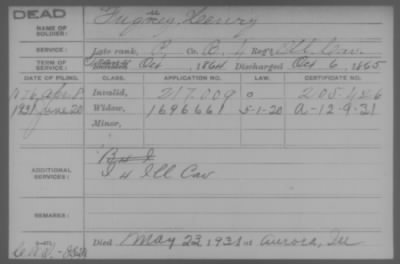 DEAD
NAME OF SOLDIER: Henry
SERVICE: Late rank, P Co. B, 4 Reg't Ill. Cav.
TERM OF SERVICE: Enlisted Oct, 1864 Discharged Oct 6, 1865
DATE OF FILING. CLASS. APPLICATION NO. LAW. CERTIFICATE NO.
1876 Apr. 8 Invalid, 217.009 205.426
1931 June 20 Widow, 1696661 5-1-20 A-12-9-31
Minor,
ADDITIONAL SERVICES:
I 4 Ill Cav
REMARKS:
Died May 23 1931 at Aurora, Ill